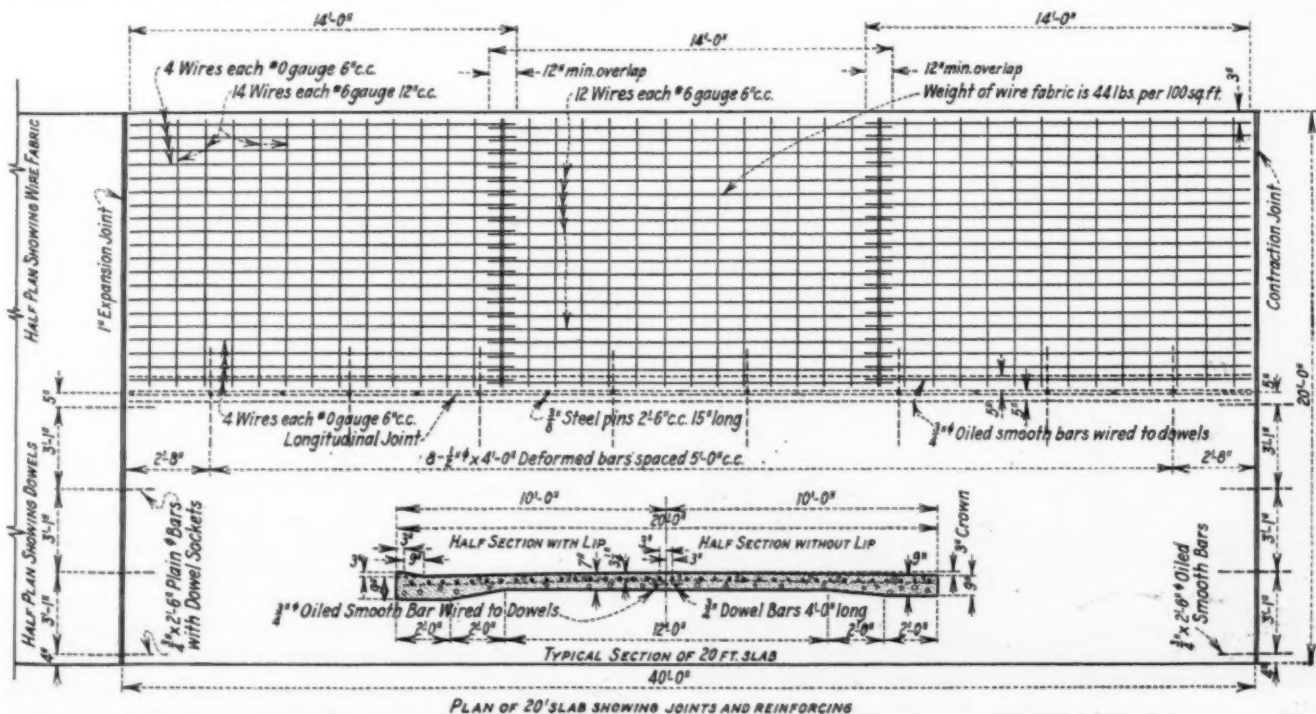 14'-0"
14'-0"
14'-0"
4 Wires each #0 gauge 6"c.c.
14 Wires each #6 gauge 12"c.c.
12" min. overlap
12 Wires each #6 gauge 6"c.c.
12" min. overlap
Weight of wire fabric is 44 lbs. per 100 sq. ft.
3"
HALF PLAN SHOWING WIRE FABRIC
1" Expansion Joint
Contraction Joint
20'-0"
5"
4 Wires each #0 gauge 6"c.c.
Longitudinal Joint
Steel pins 2'-6"c.c. 15" long
5"
5"
5"
Oiled smooth bars wired to dowels
2'-8"
8-½"ᶲ x 4'-0" Deformed bars spaced 5'-0"c.c.
2'-8"
HALF PLAN SHOWING DOWELS
3'-1"
3'-1"
3'-1"
4"
¾" x 2'-6" Plain ᶲ Bars
with Dowel Sockets
10'-0"
10'-0"
20'-0"
HALF SECTION WITH LIP
HALF SECTION WITHOUT LIP
3"
9"
3"
9"
7"
3½"
3"
9"
3" Crown
9"
Oiled Smooth Bar Wired to Dowels
Dowel Bars 4'-0" long
2'-0"
2'-0"
12'-0"
2'-0"
2'-0"
TYPICAL SECTION OF 20 FT. SLAB
3'-1"
3'-1"
3'-1"
4"
x 2'-6" ᶲ Oiled
Smooth Bars
40'-0"
PLAN OF 20' SLAB SHOWING JOINTS AND REINFORCING